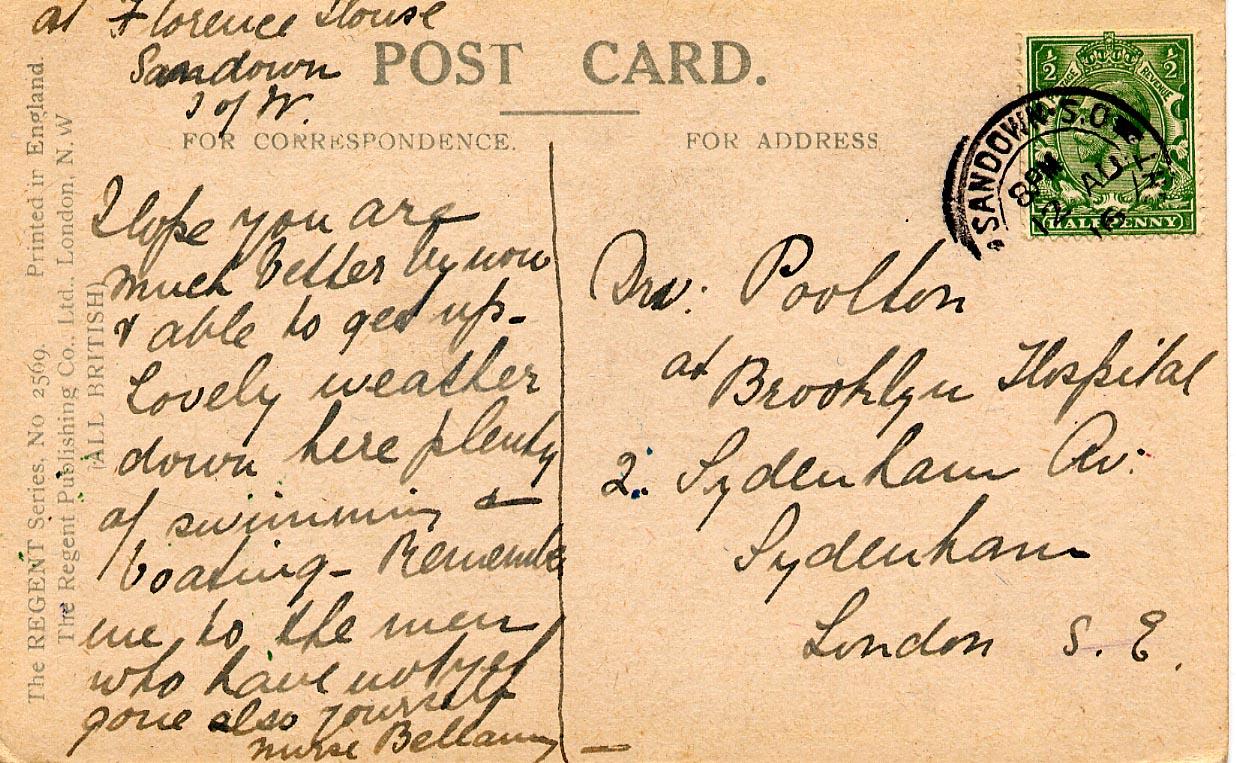 at Florence House
Sandown
I of W.
POST CARD.
FOR CORRESPONDENCE.
FOR ADDRESS
The REGENT Series, No 2569. Printed in England.
The Regent Publishing Co., Ltd., London, N.W
(ALL BRITISH)
Hope you are
much better by now
& able to get up-
Lovely weather
down here plenty
of swimming &
boating- Remember
me to the men
who have not yet
gone also yourself
nurse Bellamy
½ ½
POSTAGE REVENUE
HALFPENNY
SANDOWN. S.O
8 PM
12 AU
16
Poolton
at Brooklyn Hospital
2. Sydenham Av.
Sydenham
London S. E.